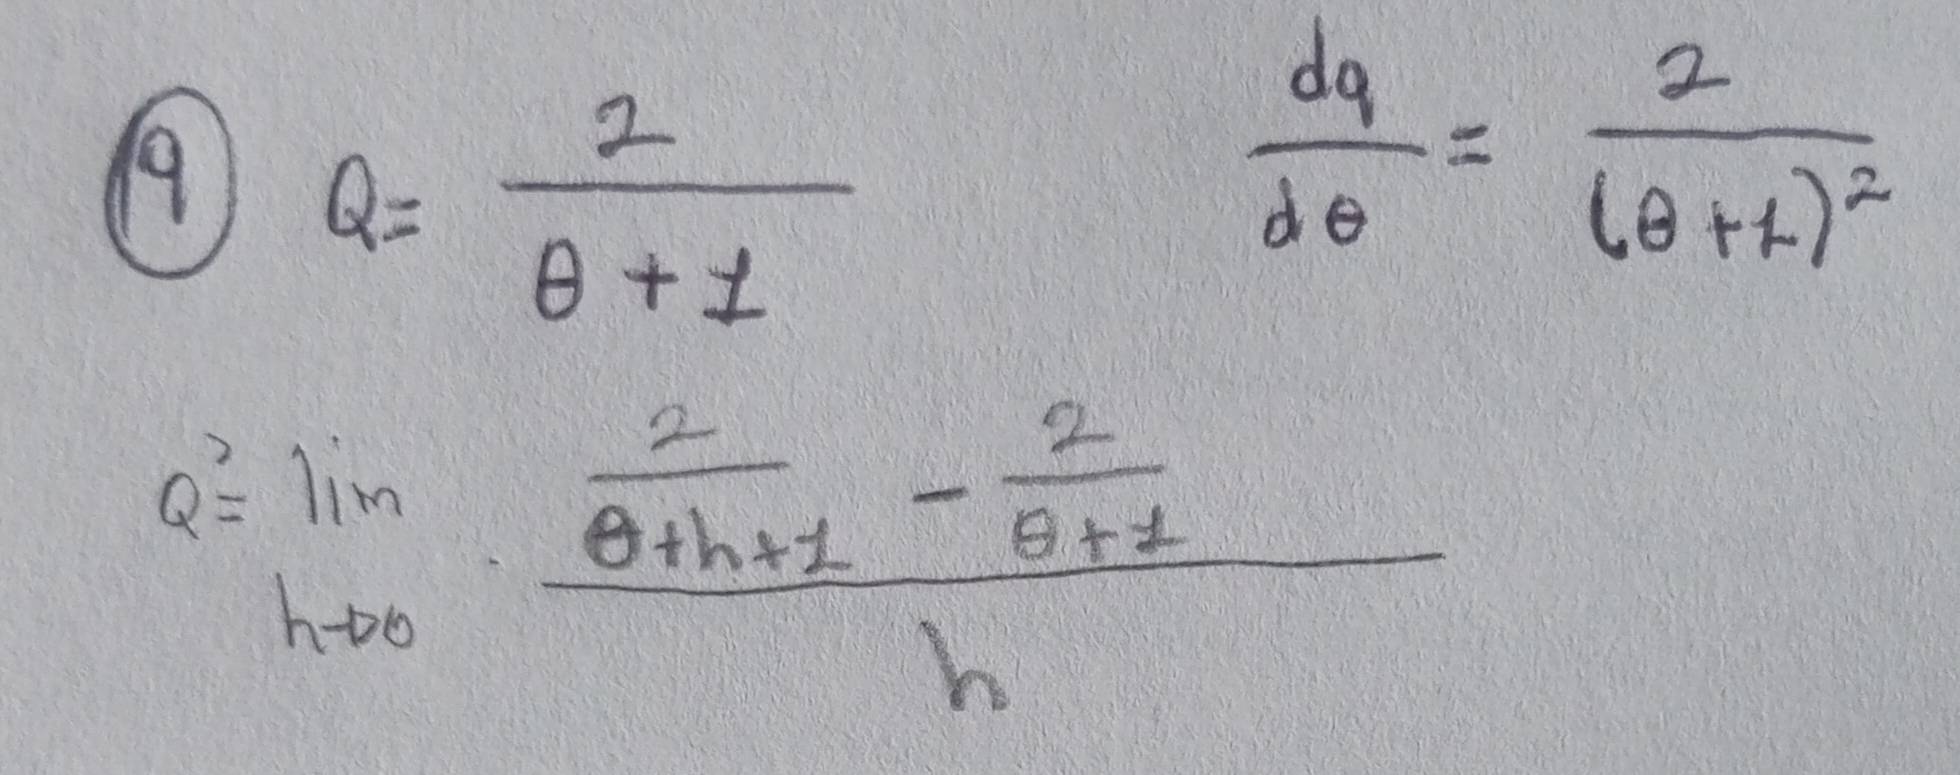 9 Q= 2/(θ+1) dq/dθ = 2/(θ+1)²
Q'= lim h→0 (2/(θ+h+1) - 2/(θ+1))/h